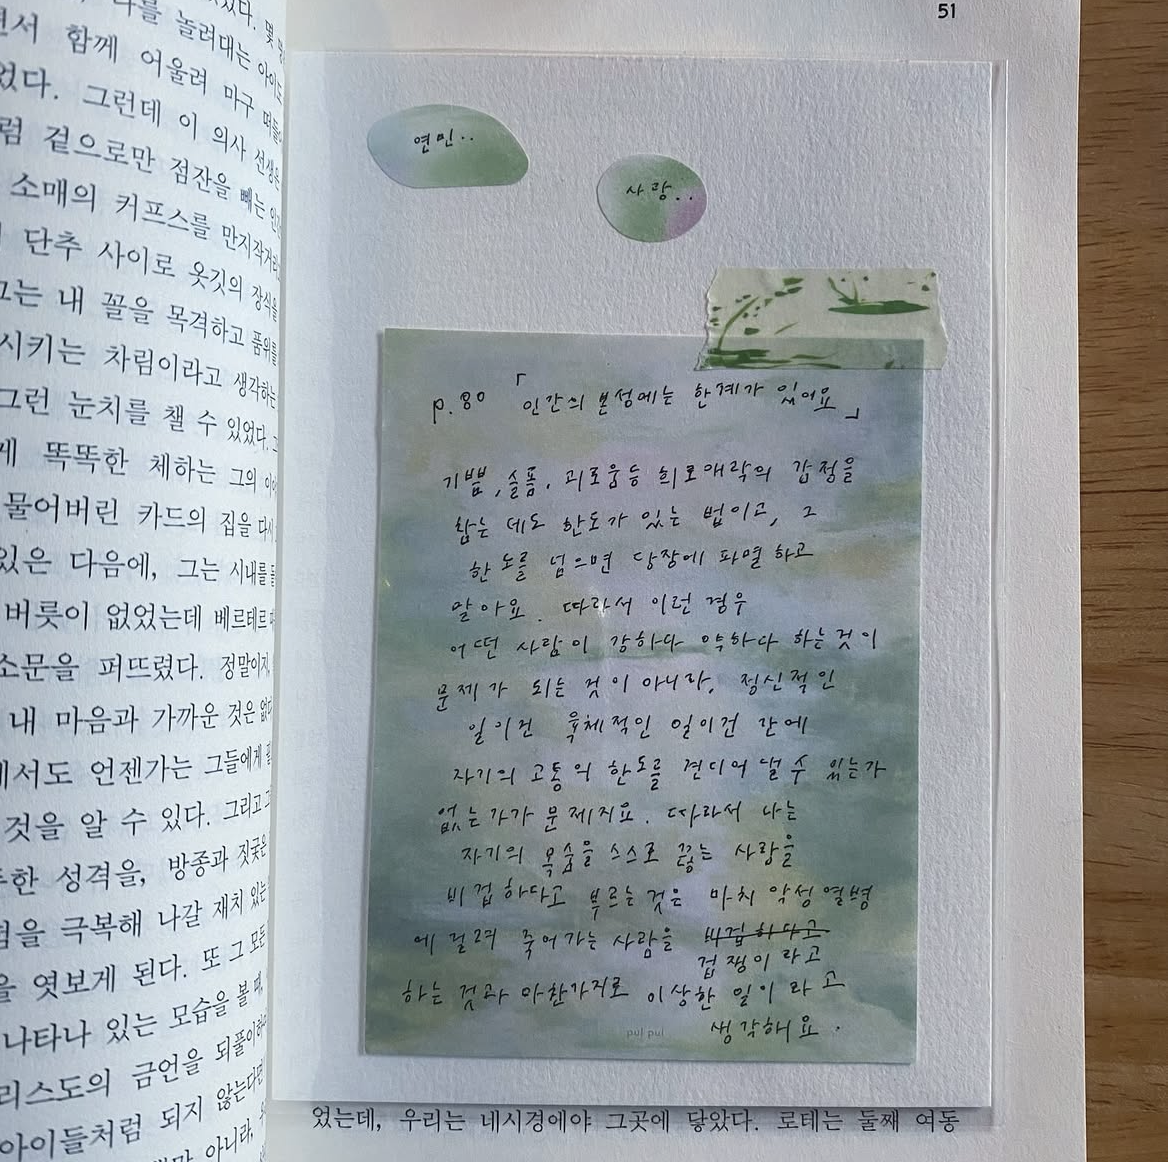 51
나를 놀려대는
면서 함께 어울려 마구
었다. 그런데 이 의사 선생은
럼 겉으로만 점잔을 빼는
소매의 커프스를 만지작거리
단추 사이로 옷깃의 장식을
그는 내 꼴을 목격하고 품위를
시키는 차림이라고 생각하는
그런 눈치를 챌 수 있었다.
게 똑똑한 체하는 그의
물어버린 카드의 집을 다시
있은 다음에, 그는 시내를
버릇이 없었는데 베르테르
소문을 퍼뜨렸다. 정말이지,
내 마음과 가까운 것은 없다
에서도 언젠가는 그들에게
것을 알 수 있다. 그리고
한 성격을, 방종과 짓궂은
점을 극복해 나갈 재치 있는
을 엿보게 된다. 또 그 모든
나타나 있는 모습을 볼 때,
리스도의 금언을 되풀이하
아이들처럼 되지 않는다면
아니라,
연민..
사랑..
p.80 「인간의 본성에는 한계가 있어요」
기쁨, 슬픔, 괴로움등 희로애락의 감정을
참는 데도 한도가 있는 법이고, 그
한도를 넘으면 당장에 파멸하고
말아요. 따라서 이런 경우
어떤 사람이 강하다 약하다 하는것이
문제가 되는 것이 아니라, 정신적인
일이건 육체적인 일이건 간에
자기의 고통의 한도를 견디어 낼 수 있는가
없는가가 문제지요. 따라서 나는
자기의 목숨을 스스로 끊는 사람을
비겁하다고 부르는 것은 마치 악성 열병
에 걸려 죽어가는 사람을 비겁하다고
겁쟁이라고
하는 것과 마찬가지로 이상한 일이라고
생각해요.
pul pul
었는데, 우리는 네시경에야 그곳에 닿았다. 로테는 둘째 여동